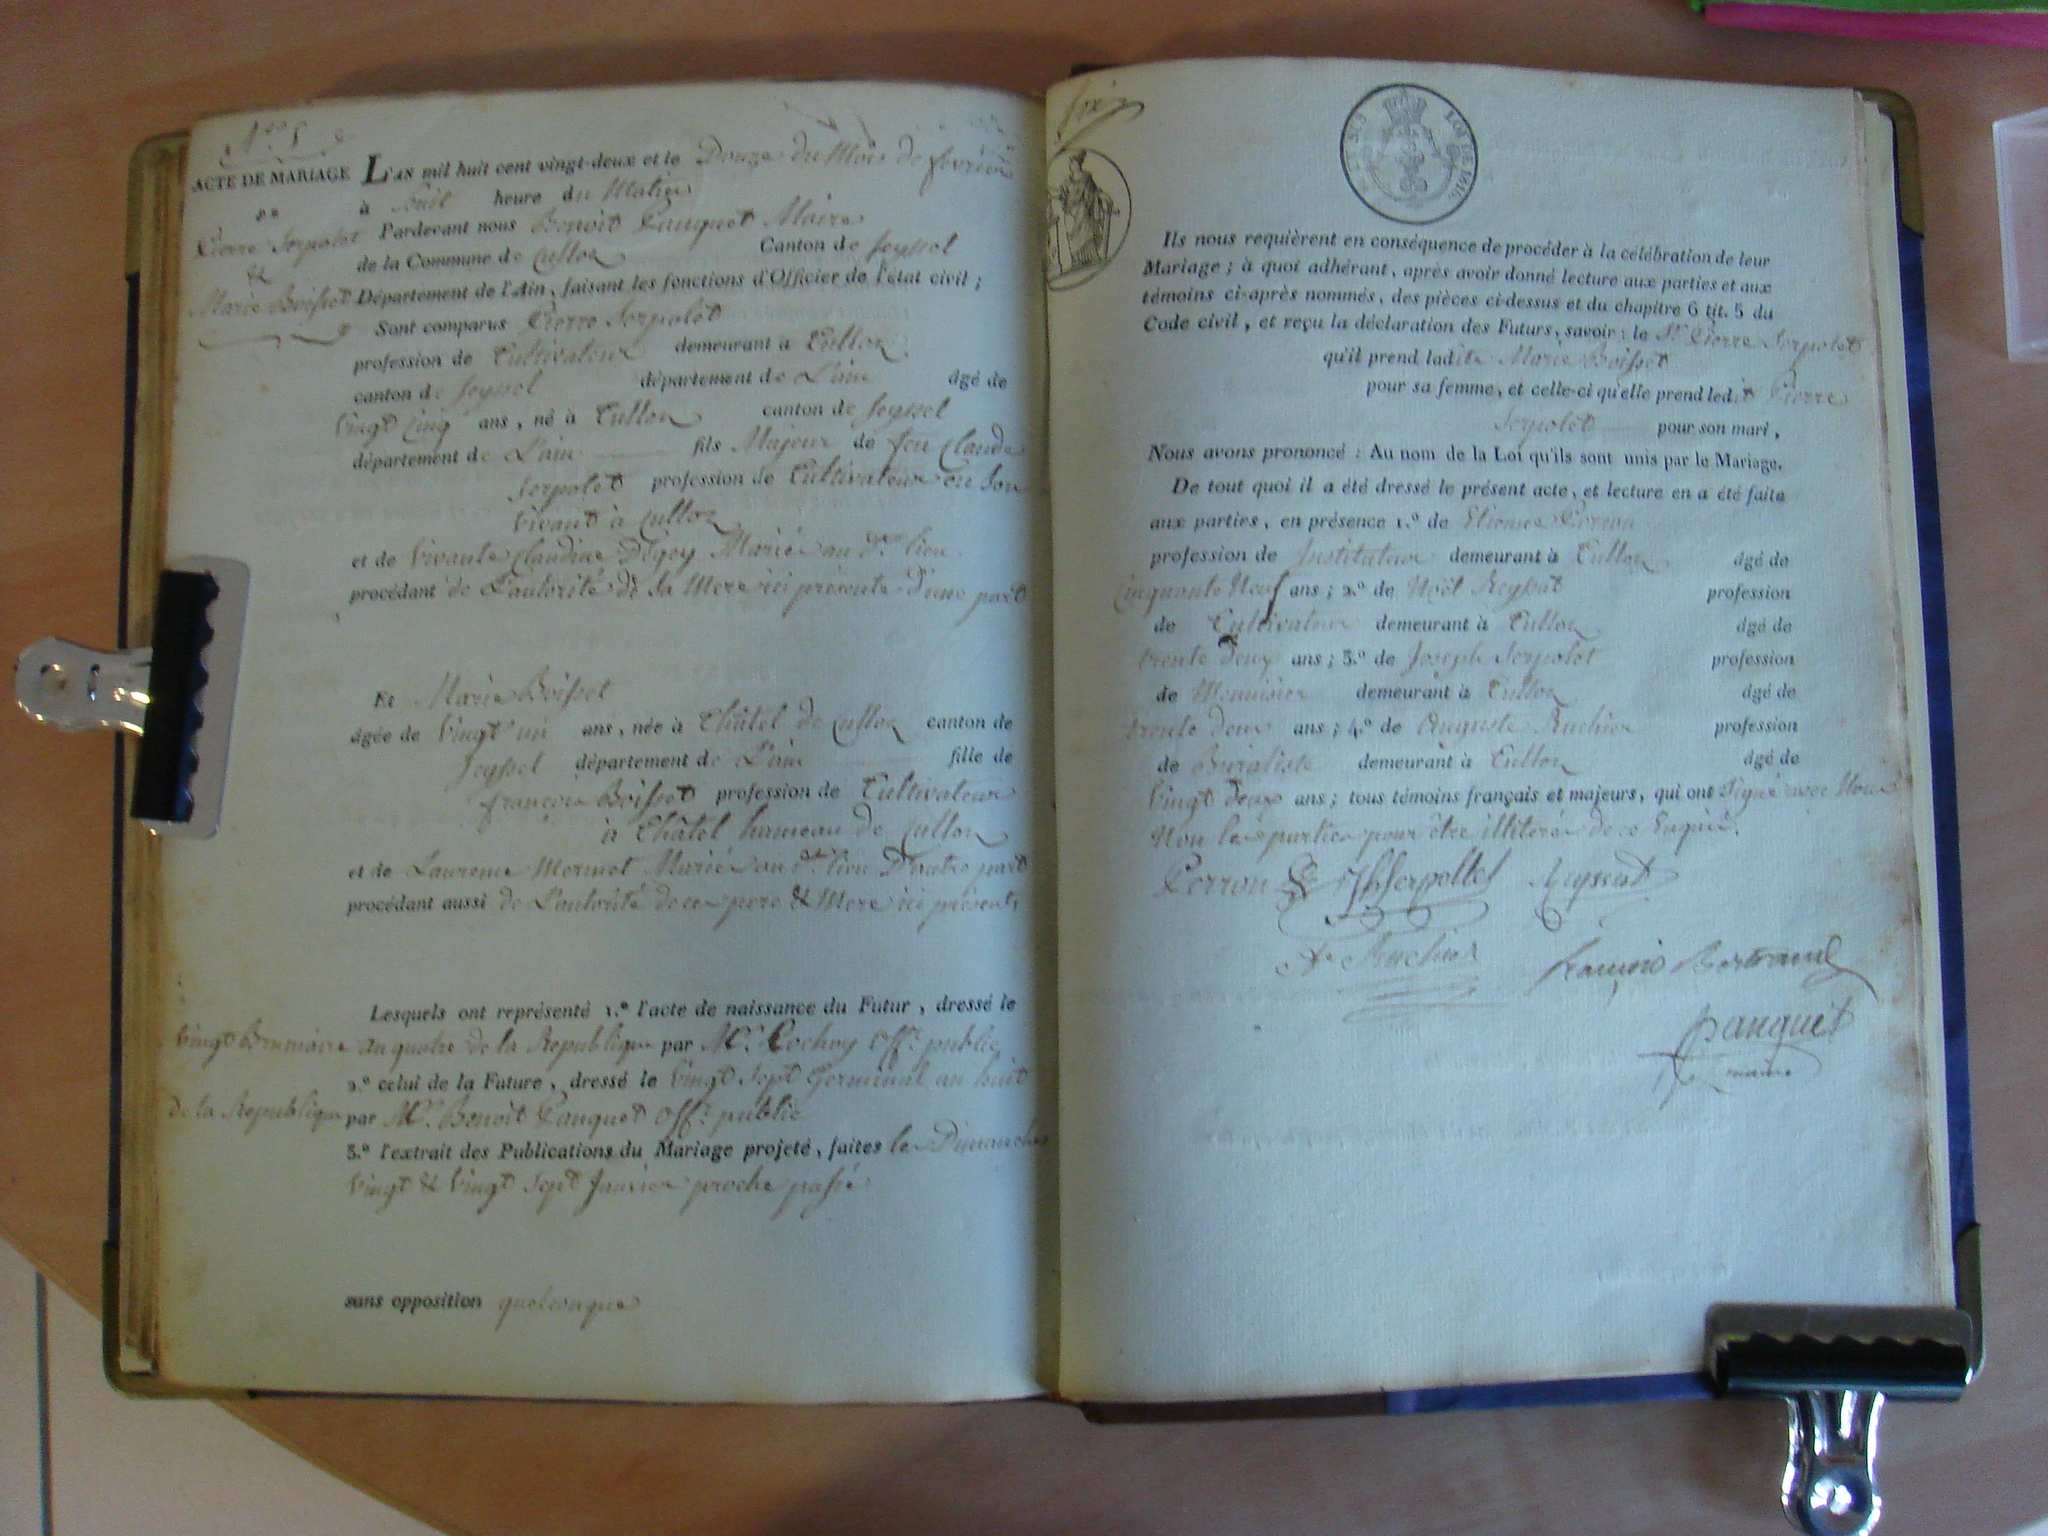 N.º 5
ACTE DE MARIAGE
Pierre Serpolet
&
Marie Boisset
L'AN mil huit cent vingt-deux et le Douze du Mois de fevrier
à huit heure du Matin
Pardevant nous Benoit Pauquet Maire
de la Commune de Culloz Canton de Seyssel
Département de l'Ain, faisant les fonctions d'Officier de l'état civil ;
Sont comparus Pierre Serpolet
profession de Cultivateur demeurant à Culloz
canton de Seyssel département de L'ain âgé de
Vingt Cinq ans, né à Culloz canton de Seyssel
département de L'ain fils Majeur de feu Claude
Serpolet profession de Cultivateur en Son
Vivant à Culloz
et de Vivante Claudine Marié au d.t lieu
procédant de L'autorité de Sa Mere ici présente D'une part
Et Marie Boisset
âgée de Vingt un ans, née à Châtel de Culloz canton de
Seyssel département de L'ain fille de
françois Boisset profession de Cultivateur
à Châtel hameau de Culloz
et de Laurence Mermet Marié au d.t lieu D'autre part
procédant aussi de L'autorité de ces pere & Mere ici présents
Lesquels ont représenté 1.º l'acte de naissance du Futur, dressé le
Vingt Brumaire an quatre de la Republique par Mr. Off.r public
2.º celui de la Future, dressé le Vingt Sept Germinal an huit
de la Republique par Mr. Benoit Pauquet Off.r public
3.º l'extrait des Publications du Mariage projeté, faites les Dimanches
Vingt & Vingt Sept Janvier proche passé
sans opposition quelconque
six
LOI DE 1816.
Ils nous requièrent en conséquence de procéder à la célébration de leur
Mariage ; à quoi adhérant, après avoir donné lecture aux parties et aux
témoins ci-après nommés, des pièces ci-dessus et du chapitre 6 tit. 5 du
Code civil, et reçu la déclaration des Futurs, savoir : le Sr. Pierre Serpolet
qu'il prend ladite Marie Boisset
pour sa femme, et celle-ci qu'elle prend ledit Pierre
Serpolet pour son mari,
Nous avons prononcé : Au nom de la Loi qu'ils sont unis par le Mariage.
De tout quoi il a été dressé le présent acte, et lecture en a été faite
aux parties, en présence 1.º de Etienne Perron
profession de Instituteur demeurant à Culloz âgé de
Cinquante Neuf ans ; 2.º de Noël Reyssat profession
de Cultivateur demeurant à Culloz âgé de
trente Deux ans ; 3.º de Joseph Serpolet profession
de Menuisier demeurant à Culloz âgé de
trente deux ans ; 4.º de Auguste Ruchier profession
de Buraliste demeurant à Culloz âgé de
Vingt deux ans ; tous témoins français et majeurs, qui ont Signé avec Nous
Non les parties pour être illiterés de ce Enquis.
Perron Jh Serpollet Reyssat
Ate Ruchier françois Bertrand
pauquet
maire